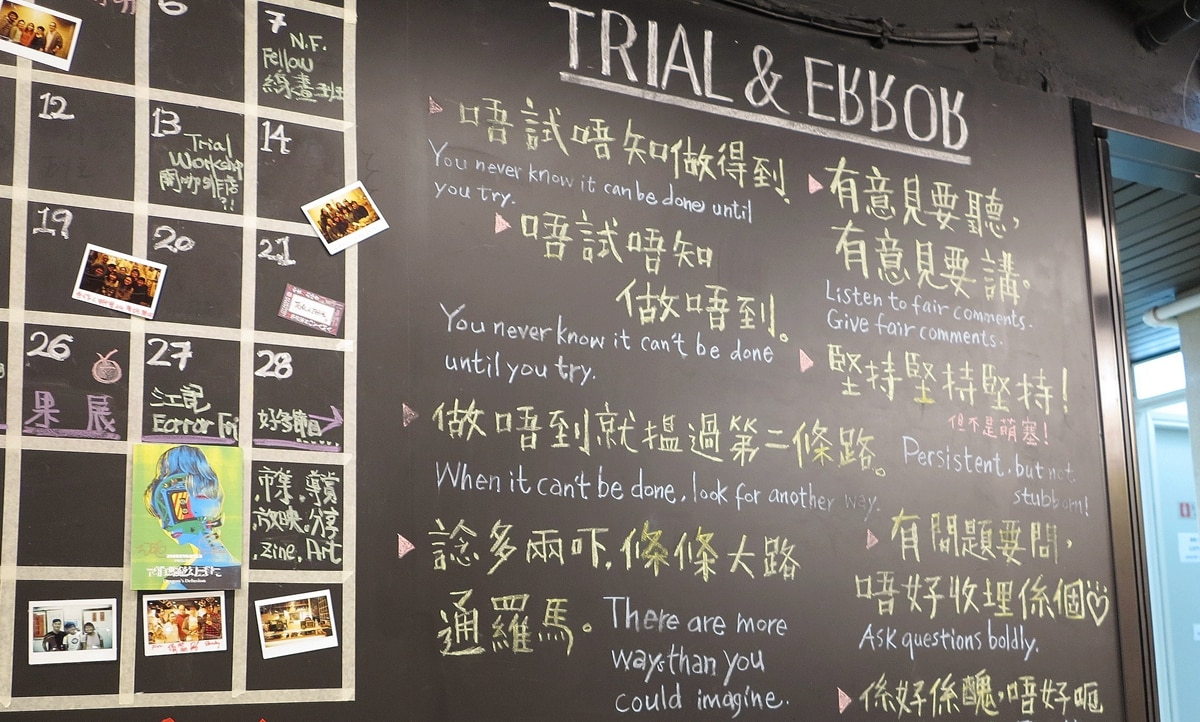 6
7
N.F.
Fellow
線畫班
12
13
Trial
Workshop
開咖啡店
?!
14
19
20
21
26
果展
27
江記
Error Fri
28
好多節目
市集, 導賞
放映, 分享
zine, Art
TRIAL & ERROR
唔試唔知做得到!
You never know it can be done, until
you try.
唔試唔知
做唔到。
You never know it can't be done
until you try.
做唔到就搵過第二條路。
When it can't be done, look for another way.
諗多兩吓, 條條大路
通羅馬。
There are more
ways than you
could imagine.
有意見要聽,
有意見要講。
Listen to fair comments.
Give fair comments.
堅持堅持堅持!
但不是萌塞!
Persistent, but not
stubborn!
有問題要問,
唔好收埋係個♡
Ask questions boldly.
係好係醜, 唔好呃